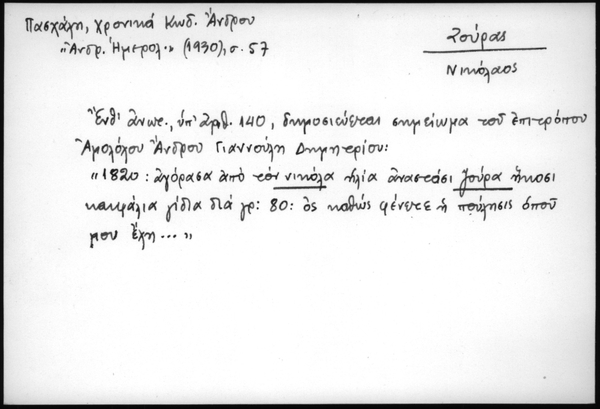 Πασχάλη, Χρονικά Κωδ. Άνδρου
"Ανδρ. Ημερολ." (1930), σ. 57
Ζούρας
Νικόλαος
Ένθ' άνωτ., υπ' αριθ. 140, δημοσιεύεται σημείωμα του επιτρόπου
Αμολόχου Άνδρου Γιαννούλη Δημητρίου:
"1820: αγόρασα από τον νικόλα ηλία αναστάσι ζούρα ήκοσι
κεφάλια γίδια διά γρ: 80: ός καθώς φένετε ή πούλησις οπού
μου έχη ..."